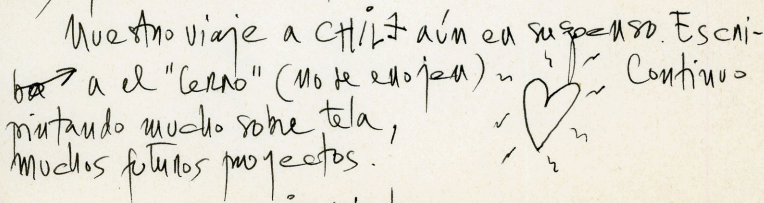 Nuestro viaje a CHILE aún en suspenso. Escri-
ba a el "Cerro" (no se enojen) ~ Continuo
pintando mucho sobre tela,
muchos futuros proyectos.